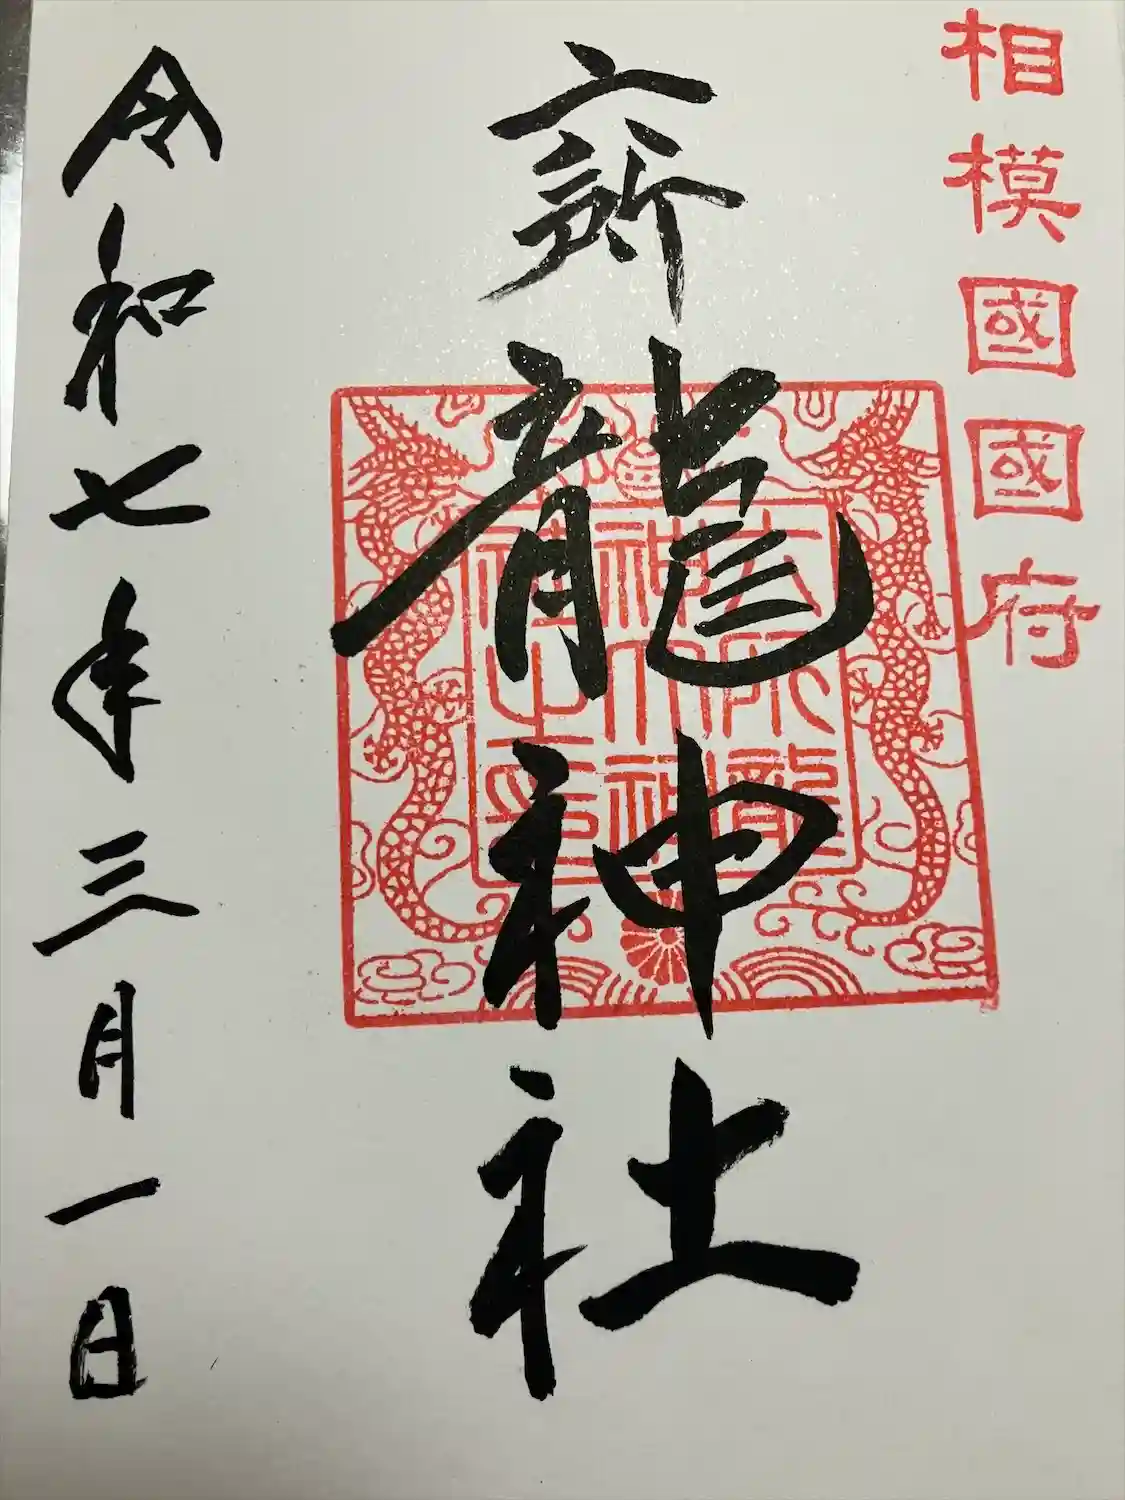 相模國國府
六所龍神社
令和七年三月一日